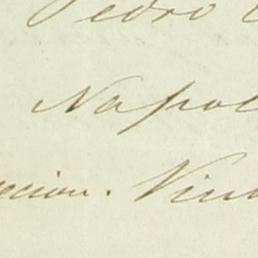 Pedro
Napol
cion. Vin